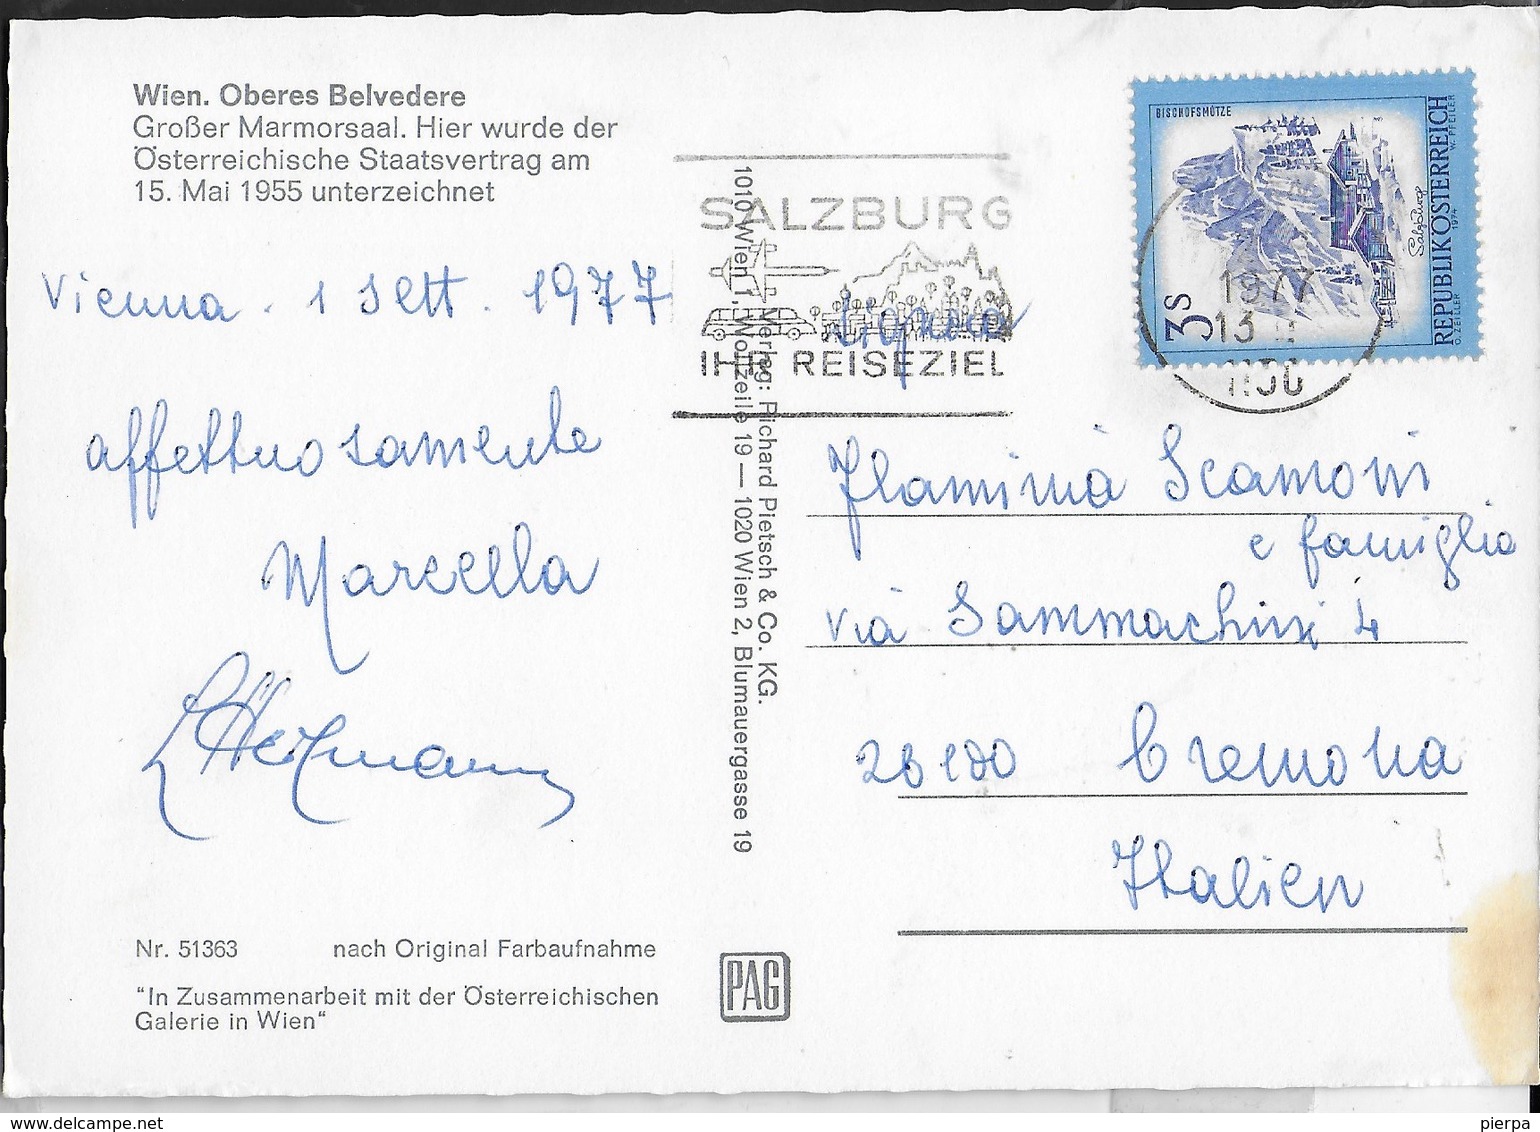 Wien. Oberes Belvedere
Großer Marmorsaal. Hier wurde der
Österreichische Staatsvertrag am
15. Mai 1955 unterzeichnet
Vienna. 1 Sett. 1977
affettuosamente
Marcella
Nr. 51363 nach Original Farbaufnahme
"In Zusammenarbeit mit der Österreichischen
Galerie in Wien"
Verlag: Richard Pietsch & Co. KG.
1010 Wien 1, Wollzeile 19 — 1020 Wien 2, Blumauergasse 19
PAG
SALZBURG
IHR REISEZIEL
BISCHOFSMÜTZE
3S
Salzburg
REPUBLIK ÖSTERREICH
O. ZEILER 1974 W. PFEILER
1977
13
Flaminia Scamoni
e famiglia
via Sammachini 4
Cremona
Italien
pierpa